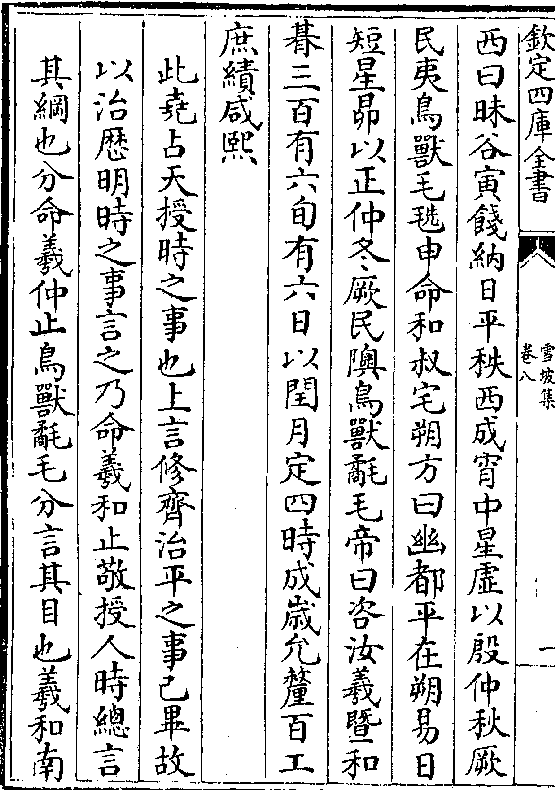 欽定四庫全書
雪坡集
卷八
一
西曰昧谷寅餞納日平秩西成宵中星虛以殷仲秋厥
民夷鳥獸毛毨申命和叔宅朔方曰幽都平在朔易日
短星昴以正仲冬厥民隩鳥獸氄毛帝曰咨汝羲暨和
朞三百有六旬有六日以閏月定四時成歲允釐百工
庶績咸熙
此堯占天授時之事也上言修齊治平之事已畢故
以治歴明時之事言之乃命羲和止敬授人時總言
其綱也分命羲仲止鳥獸氄毛分言其目也羲和南